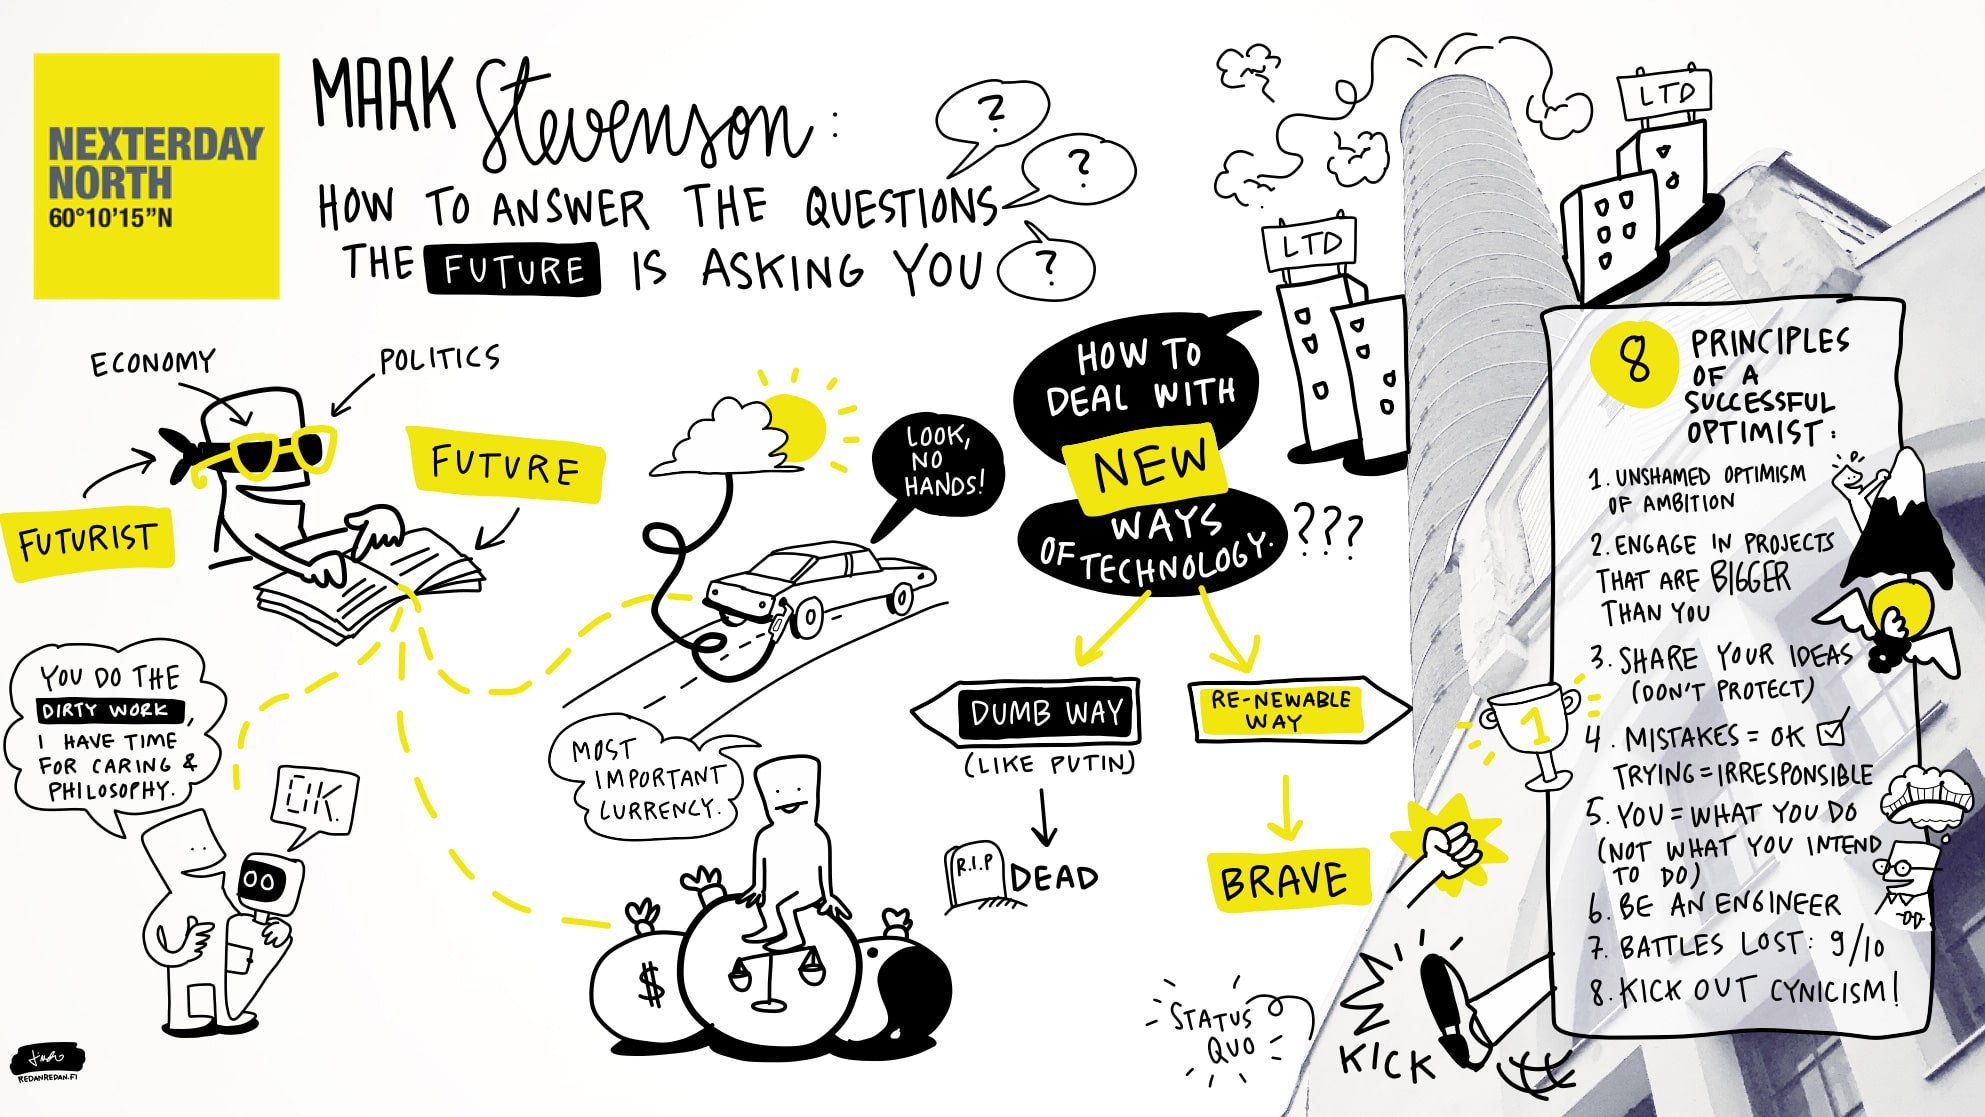 NEXTERDAY
NORTH
60°10'15"N
MARK Stevenson:
HOW TO ANSWER THE QUESTIONS
THE FUTURE IS ASKING YOU
?
?
?
ECONOMY
POLITICS
FUTURIST
FUTURE
YOU DO THE
DIRTY WORK,
I HAVE TIME
FOR CARING &
PHILOSOPHY.
OK.
LOOK,
NO
HANDS!
MOST
IMPORTANT
CURRENCY.
$
HOW TO
DEAL WITH
NEW
WAYS
OF TECHNOLOGY.
???
DUMB WAY
(LIKE PUTIN)
R.I.P
DEAD
RE-NEWABLE
WAY
BRAVE
LTD
LTD
8 PRINCIPLES
OF A
SUCCESSFUL
OPTIMIST:
1. UNSHAMED OPTIMISM
OF AMBITION
2. ENGAGE IN PROJECTS
THAT ARE BIGGER
THAN YOU
3. SHARE YOUR IDEAS
(DON'T PROTECT)
1
4. MISTAKES = OK
TRYING = IRRESPONSIBLE
5. YOU = WHAT YOU DO
(NOT WHAT YOU INTEND
TO DO)
6. BE AN ENGINEER
7. BATTLES LOST: 9/10
8. KICK OUT CYNICISM!
STATUS
QUO
KICK
REDANREDAN.FI